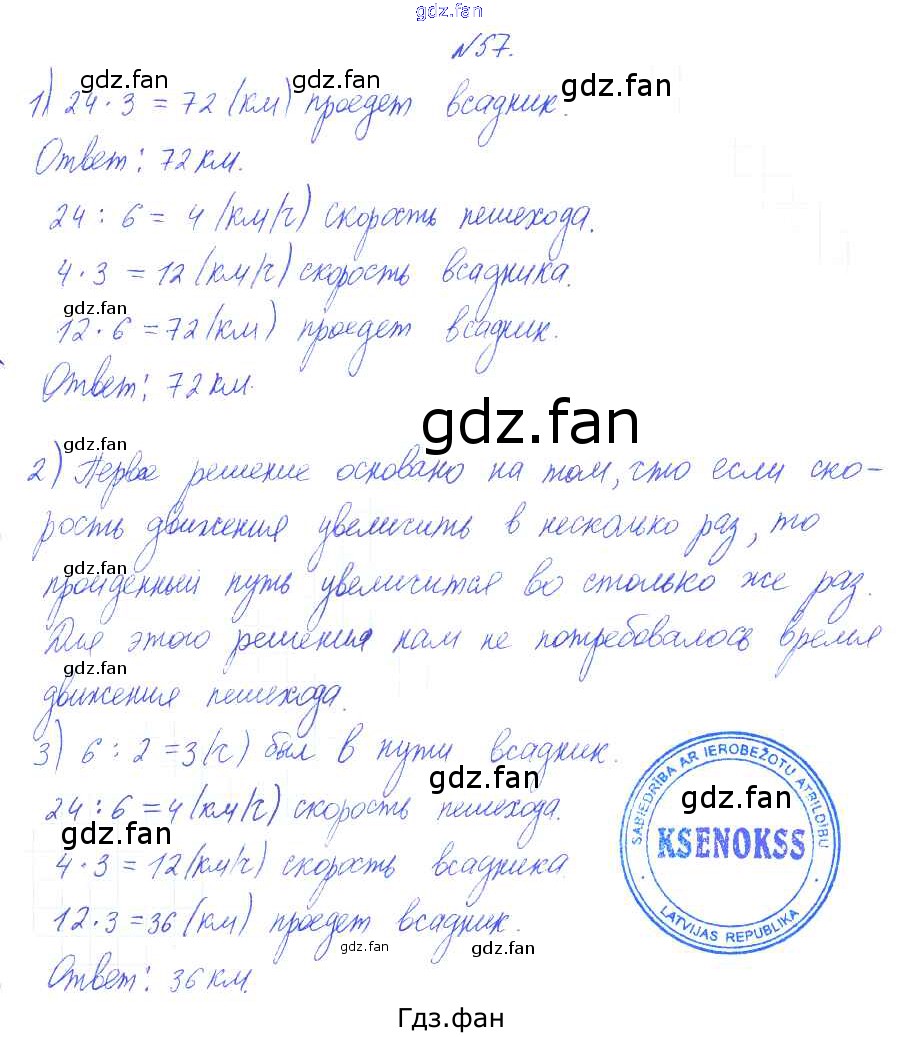 gdz.fan
№57.
gdz.fan gdz.fan gdz.fan
1) 24·3 = 72 (км) проедет всадник.
Ответ: 72 км.
24 : 6 = 4 (км/ч) скорость пешехода.
4·3 = 12 (км/ч) скорость всадника.
gdz.fan
12·6 = 72 (км) проедет всадник.
Ответ: 72 км.
gdz.fan
gdz.fan
2) Первое решение основано на том, что если ско-
рость движения увеличить в несколько раз, то
gdz.fan
пройденный путь увеличится во столько же раз.
Для этого решения нам не потребовалось время
gdz.fan
движения пешехода.
3) 6 : 2 = 3 (ч) был в пути всадник.
gdz.fan
gdz.fan
24 : 6 = 4 (км/ч) скорость пешехода.
gdz.fan
4·3 = 12 (км/ч) скорость всадника
12·3 = 36 (км) проедет всадник.
gdz.fan gdz.fan
Ответ: 36 км.
SABIEDRĪBA AR IEROBEŽOTU ATBILDĪBU
KSENOKSS
LATVIJAS REPUBLIKA
Гдз.фан